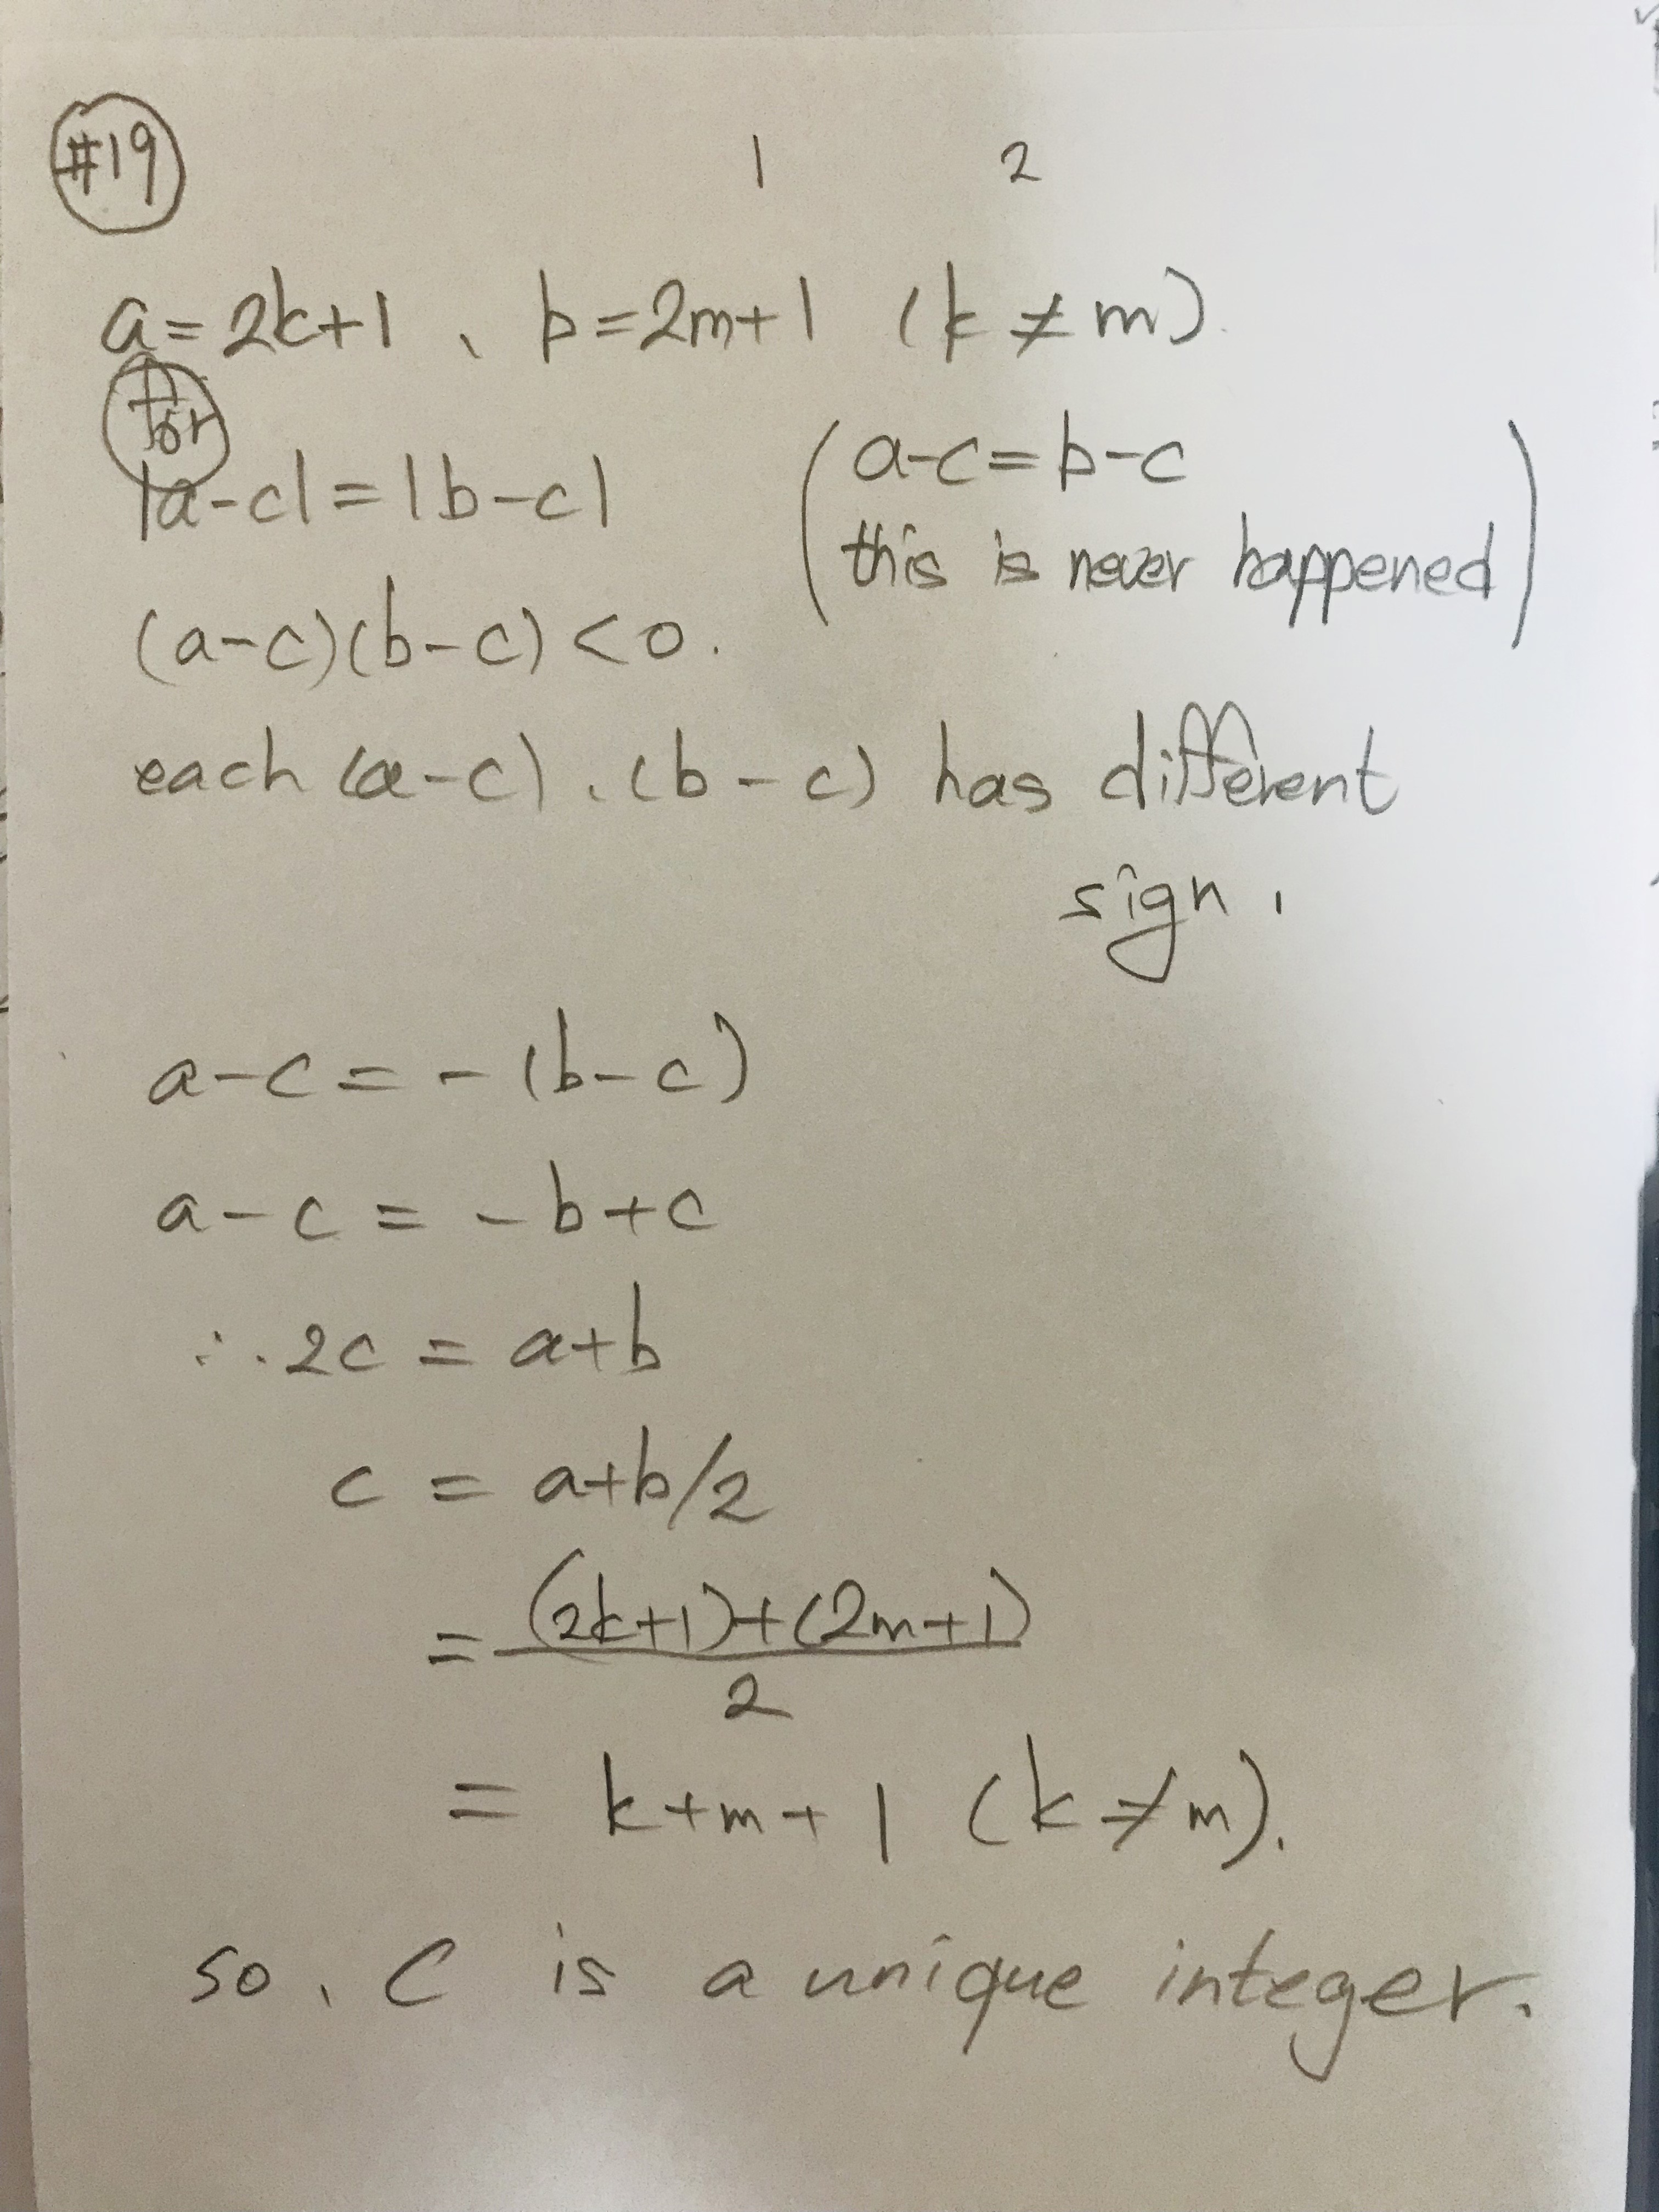 #19
1 2
a=2k+1 、 b=2m+1 (k ≠ m).
for
|a-c|=|b-c|
(a-c=b-c
this is never happened)
(a-c)(b-c)<0.
each (a-c)、(b-c) has different
sign.
a-c=-(b-c)
a-c=-b+c
∴ 2c=a+b
c=a+b/2
=(2k+1)+(2m+1)
2
= k+m+1 (k≠m).
so、 C is a unique integer.